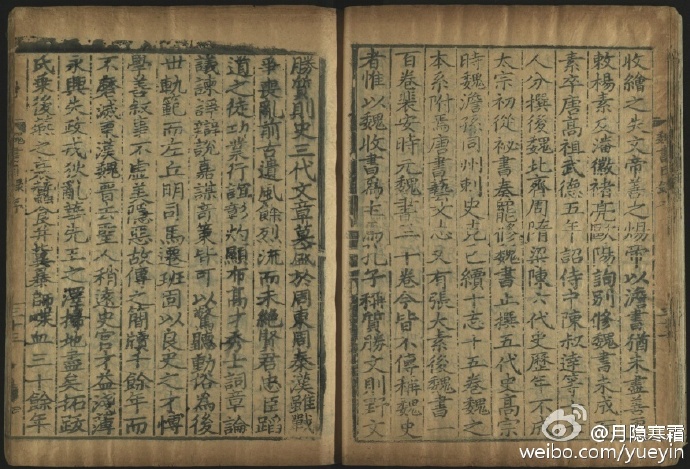 收繪之失文帝善之煬帝以澹書猶未盡善
敕楊素及潘徽褚亮歐陽詢別修魏書未成
素卒唐高祖武德五年詔侍中陳叔達等
人分撰後魏北齊周隋梁陳六代史歷年不成
太宗初從祕書奏罷修魏書止撰五代史高宗
時魏澹孫同州刺史克己續十志十五卷魏之
本系附焉唐書藝文志又有張大素後魏書一
百卷裴安時元魏書三十卷今皆不傳稱魏史
者惟以魏收書爲主焉孔子稱質勝文則野文
勝質則史三代文章莫盛於周東周秦漢雖戰
爭喪亂前古遺風餘烈流而未絕賢君忠臣蹈
道之徒功業行誼彰灼顯布高才秀士詞章論
議諫諍辯說嘉謀奇策皆可以驚聽動俗為後
世軌範而左丘明司馬遷班固以良史之才博
學善敘事不虛美隱惡故傳之簡牘千餘年而
不磨滅東漢魏晉去聖人稍遠史官才益淺薄
永興失政戎狄亂華先王之澤掃地盡矣拓拔
氏乘後燕之衰蠶食并冀暴師喋血三十餘年
@月隐寒霜
weibo.com/yueyin